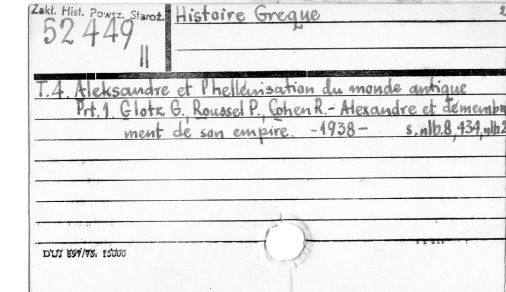 Zakł. Hist. Powsz. Staroż.
52 449
II
Histoire Greque
2
T.4. Aleksandre et l'hellenisation du monde antique
Prt.1. Glotz G., Roussel P., Cohen R. - Alexandre et demembre
ment de son empire. -1938- s.nlb.8,434,nlb2
DUJ 897/75. 15000